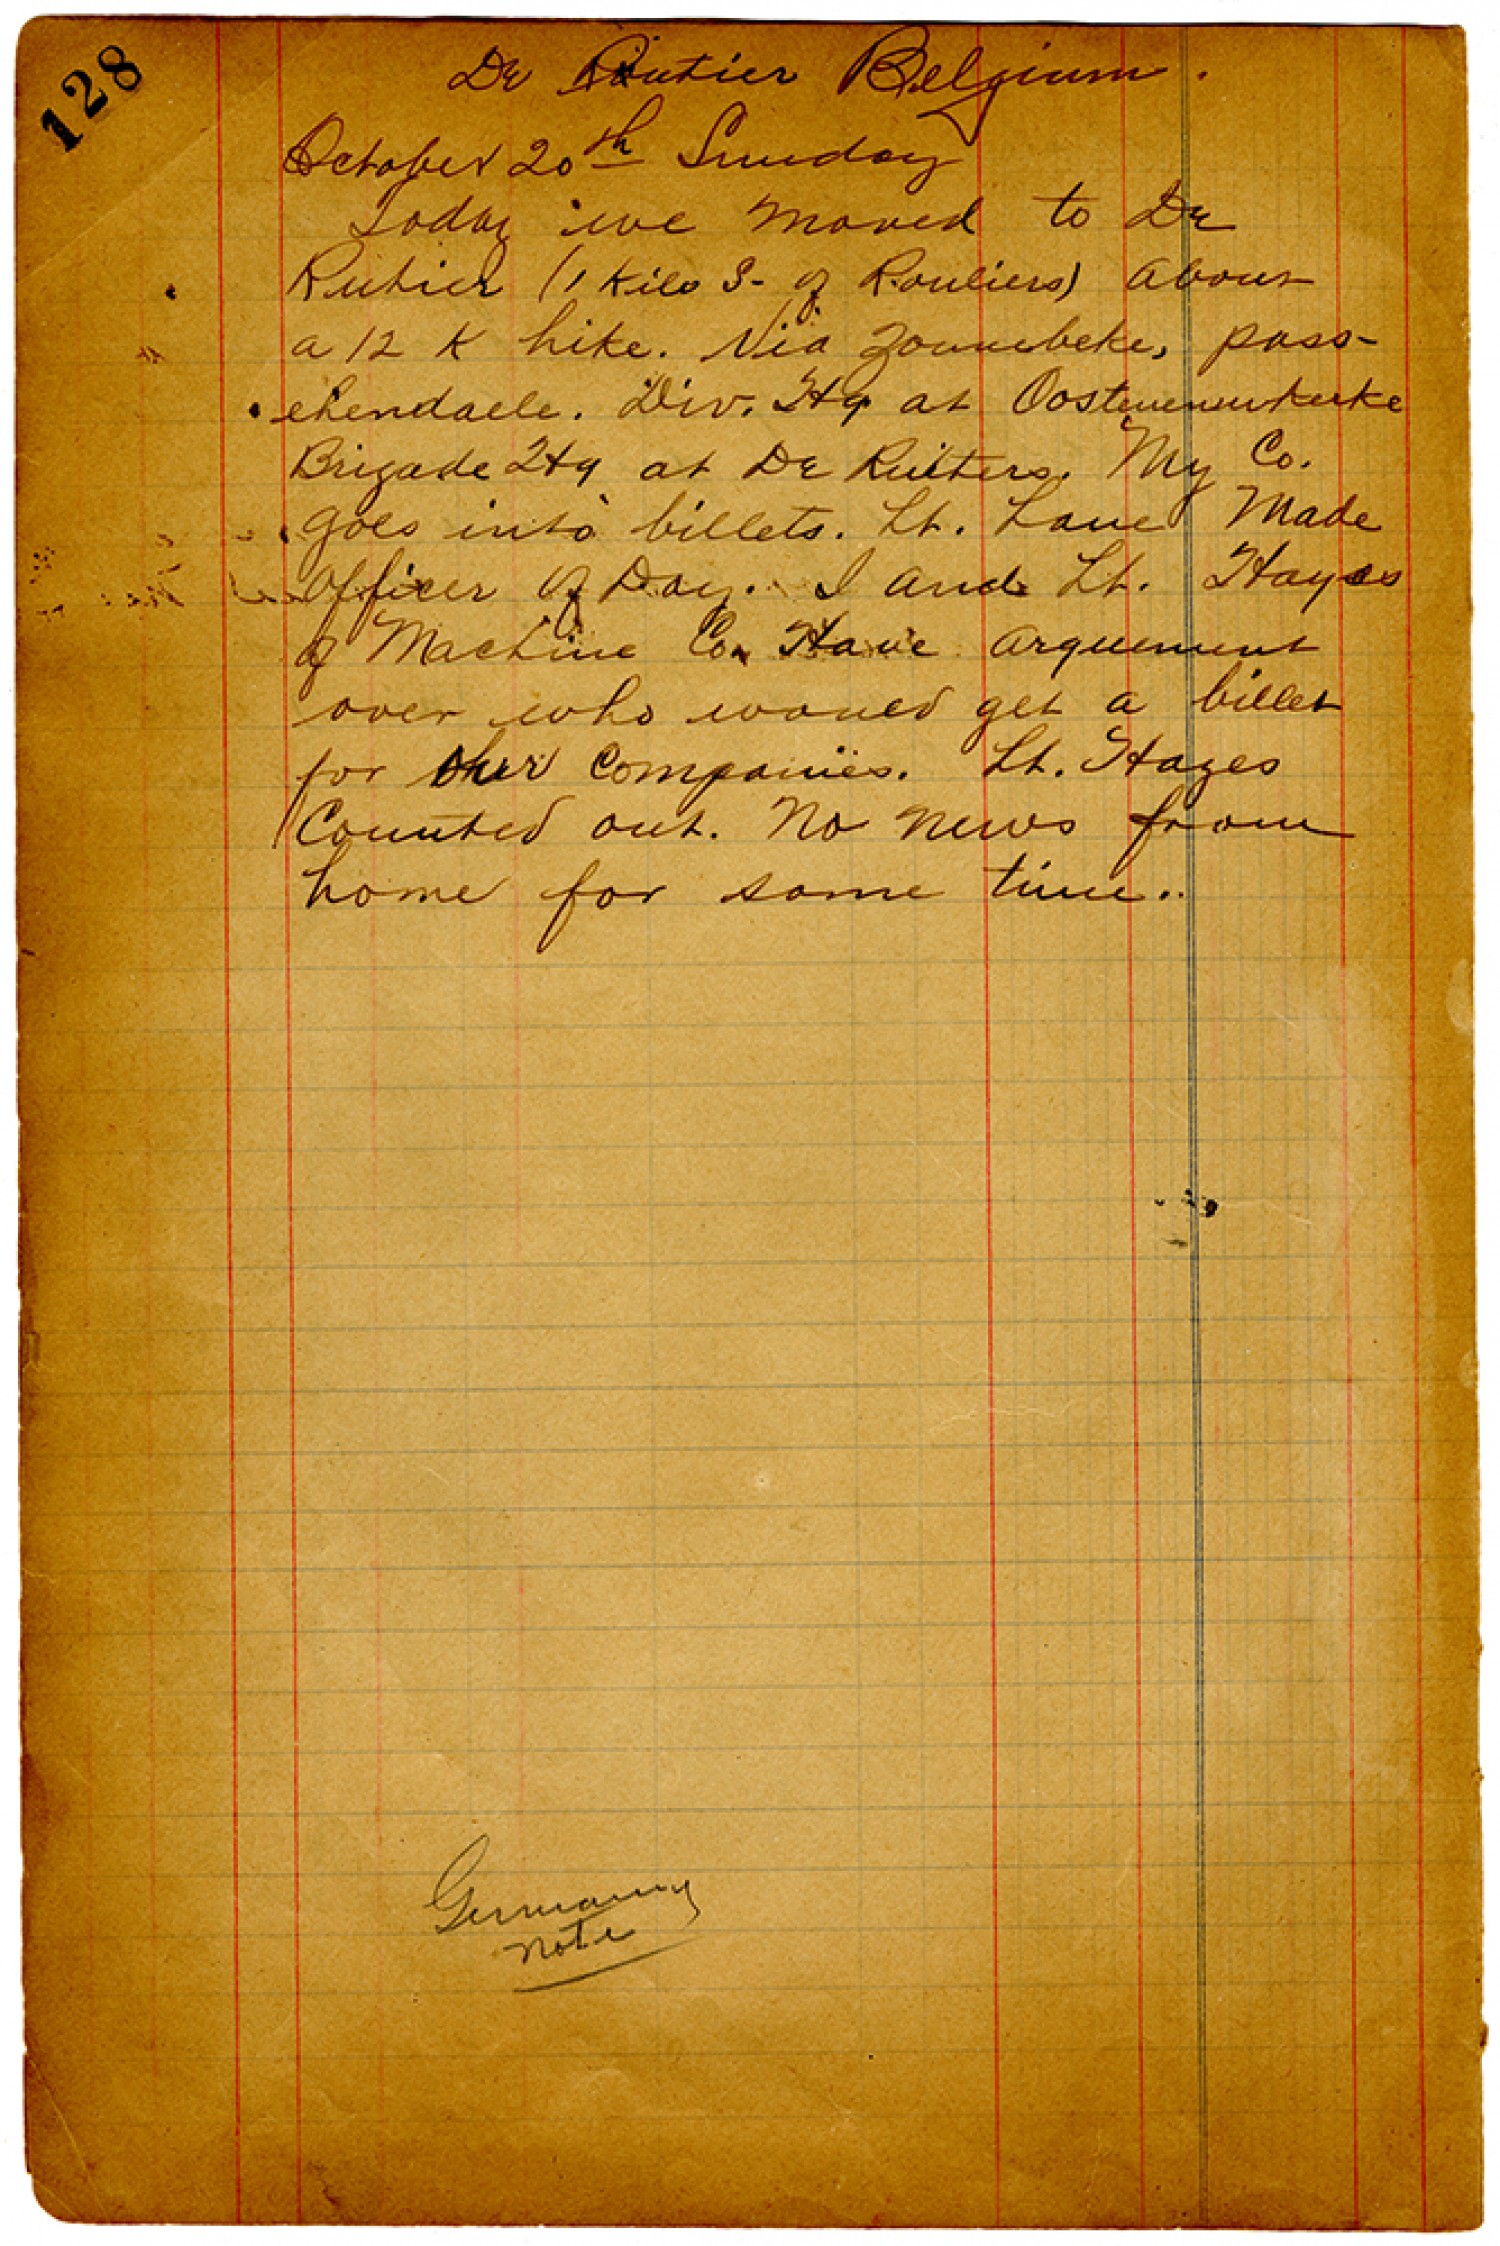 128
De Rutier Belgium.
October 20th Sunday
Today we moved to De
Rutier (1 Kilo S- of Rouliers) about
a 12 K hike. Via Zonnebeke, pass-
chendaele. Div. Hq at
Brigade Hq at De Ruiters. My Co.
goes into billets. Lt. Lane Made
Officer of Day. I and Lt. Hayes
of Machine Co. Have arguement
over who would get a billet
for their Companies. Lt. Hayes
Counted out. No news from
home for some time..
Germany
note